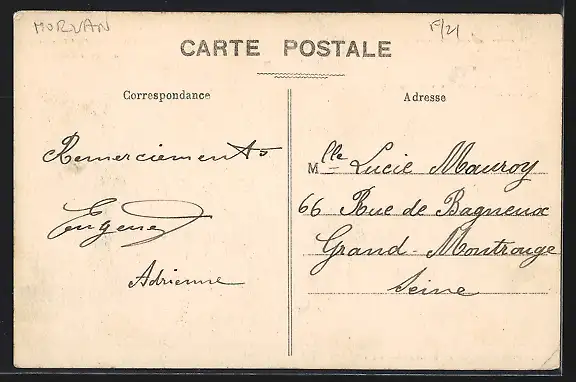 MORVAN
F/21
CARTE POSTALE
Correspondance
Remerciements
Eugene
Adrienne
Adresse
Mlle Lucie Mauroy
66 Rue de Bagneux
Grand-Montrouge
Seine